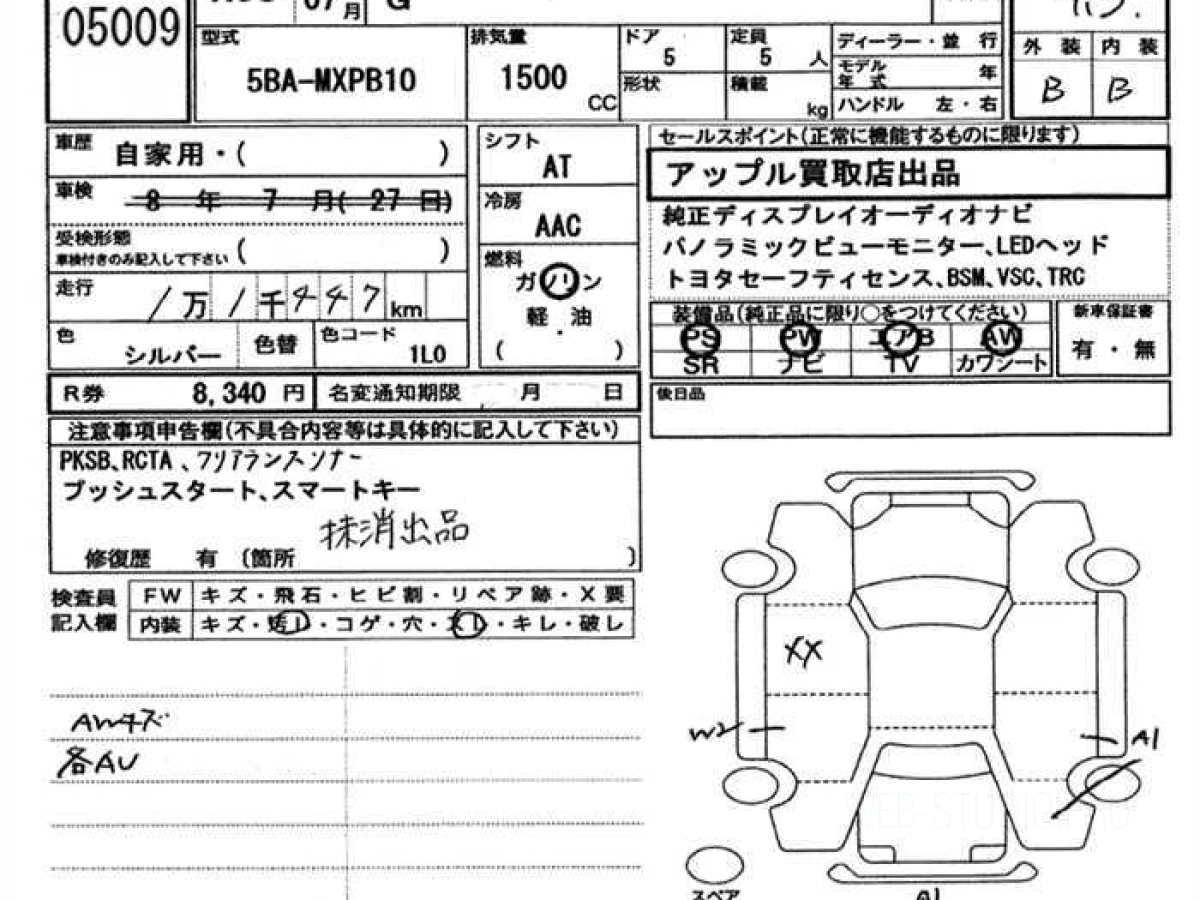 05009
07月 G
型式 5BA-MXPB10
排気量 1500 CC
ドア 5
定員 5 人
形状
積載 kg
ディーラー・並行
モデル年式 年
ハンドル 左・右
外装 内装
B B
車歴 自家用・( )
車検 8 年 7 月( 27 日)
受検形態
車検付きのみ記入して下さい ( )
走行 1万1千447km
色 シルバー 色替 色コード 1L0
シフト AT
冷房 AAC
燃料
ガソリン
軽・油
( )
R券 8,340 円 名変通知期限 月 日
セールスポイント(正常に機能するものに限ります)
アップル買取店出品
純正ディスプレイオーディオナビ
パノラミックビューモニター、LEDヘッド
トヨタセーフティセンス、BSM、VSC、TRC
装備品(純正品に限り○をつけてください)
PS PW エアB AW
SR ナビ TV カワシート
新車保証書
有・無
後日品
注意事項申告欄(不具合内容等は具体的に記入して下さい)
PKSB、RCTA、クリアランスソナー
プッシュスタート、スマートキー
抹消出品
修復歴 有 (箇所 )
検査員記入欄
FW キズ・飛石・ヒビ割・リペア跡・X要
内装 キズ・汚れ・コゲ・穴・スレ・キレ・破レ
AWキズ
各AU
XX
W2
A1
スペア
A1
WEB-STUDIO.PRO